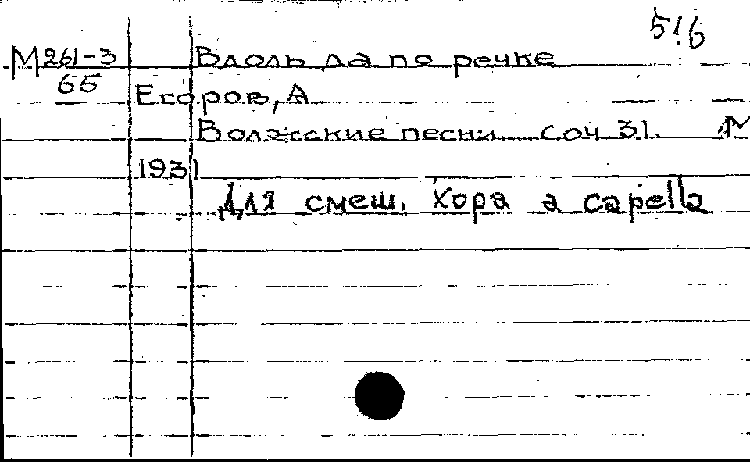 516
М261-3 Вдоль да по речке
65
Егоров, А
Волжские песни соч 31. М
1931
Для смеш. хора a capella